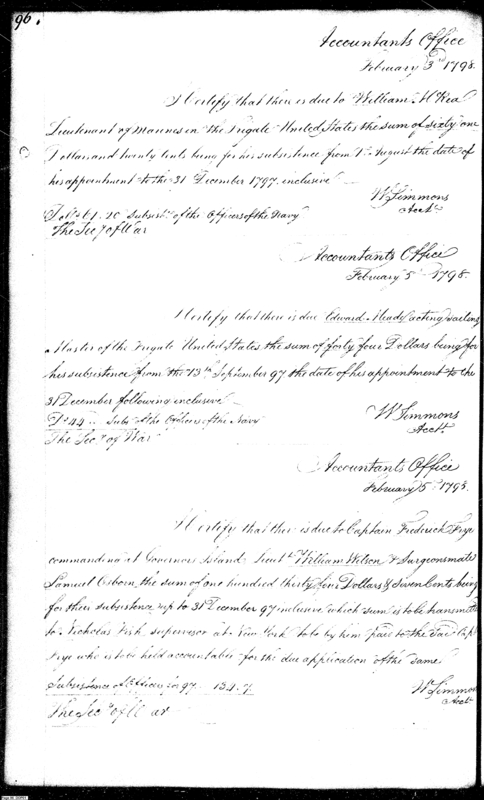 96.
Accountants Office
February 3d 1798.
I Certify that there is due to William McRea
Lieutenant of Marines in the Frigate United States the sum of sixty one
Dollars and twenty Cents being for his subsistence from 1st August the date of
his appointment to the 31 December 1797. inclusive
W Simmons
Acct
Dolls 61.20 Subsist. of the Officers of the Navy
The Secy of War
Accountants Office
February 5 1798.
I Certify that there is due Edward Meade acting sailing
Master of the Frigate United States the sum of forty four Dollars being for
his subsistence from the 13th September 97 the date of his appointment to the
31 December following inclusive
Ds 44.. Subs of the Officers of the Navy
W Simmons
Acct.
The Secy of War
Accountants Office
February 5 1798.
I Certify that ther is due to Captain Frederick Frye
commanding at Governors Island Lieutt William Wilson & Surgeonsmate
Samuel Osborn, the sum of one hundred thirty four Dollars & seven Cents being
for their subsistence up to 31 December 97 inclusive which sum is to be transmitted
to Nicholas Fish supervisor at New York to be by him paid to the said Capt
Frye who is to be held accountable for the due application of the same
Subsistence of Officers for 97 134.7
W Simmons
Acct
The Secy of War